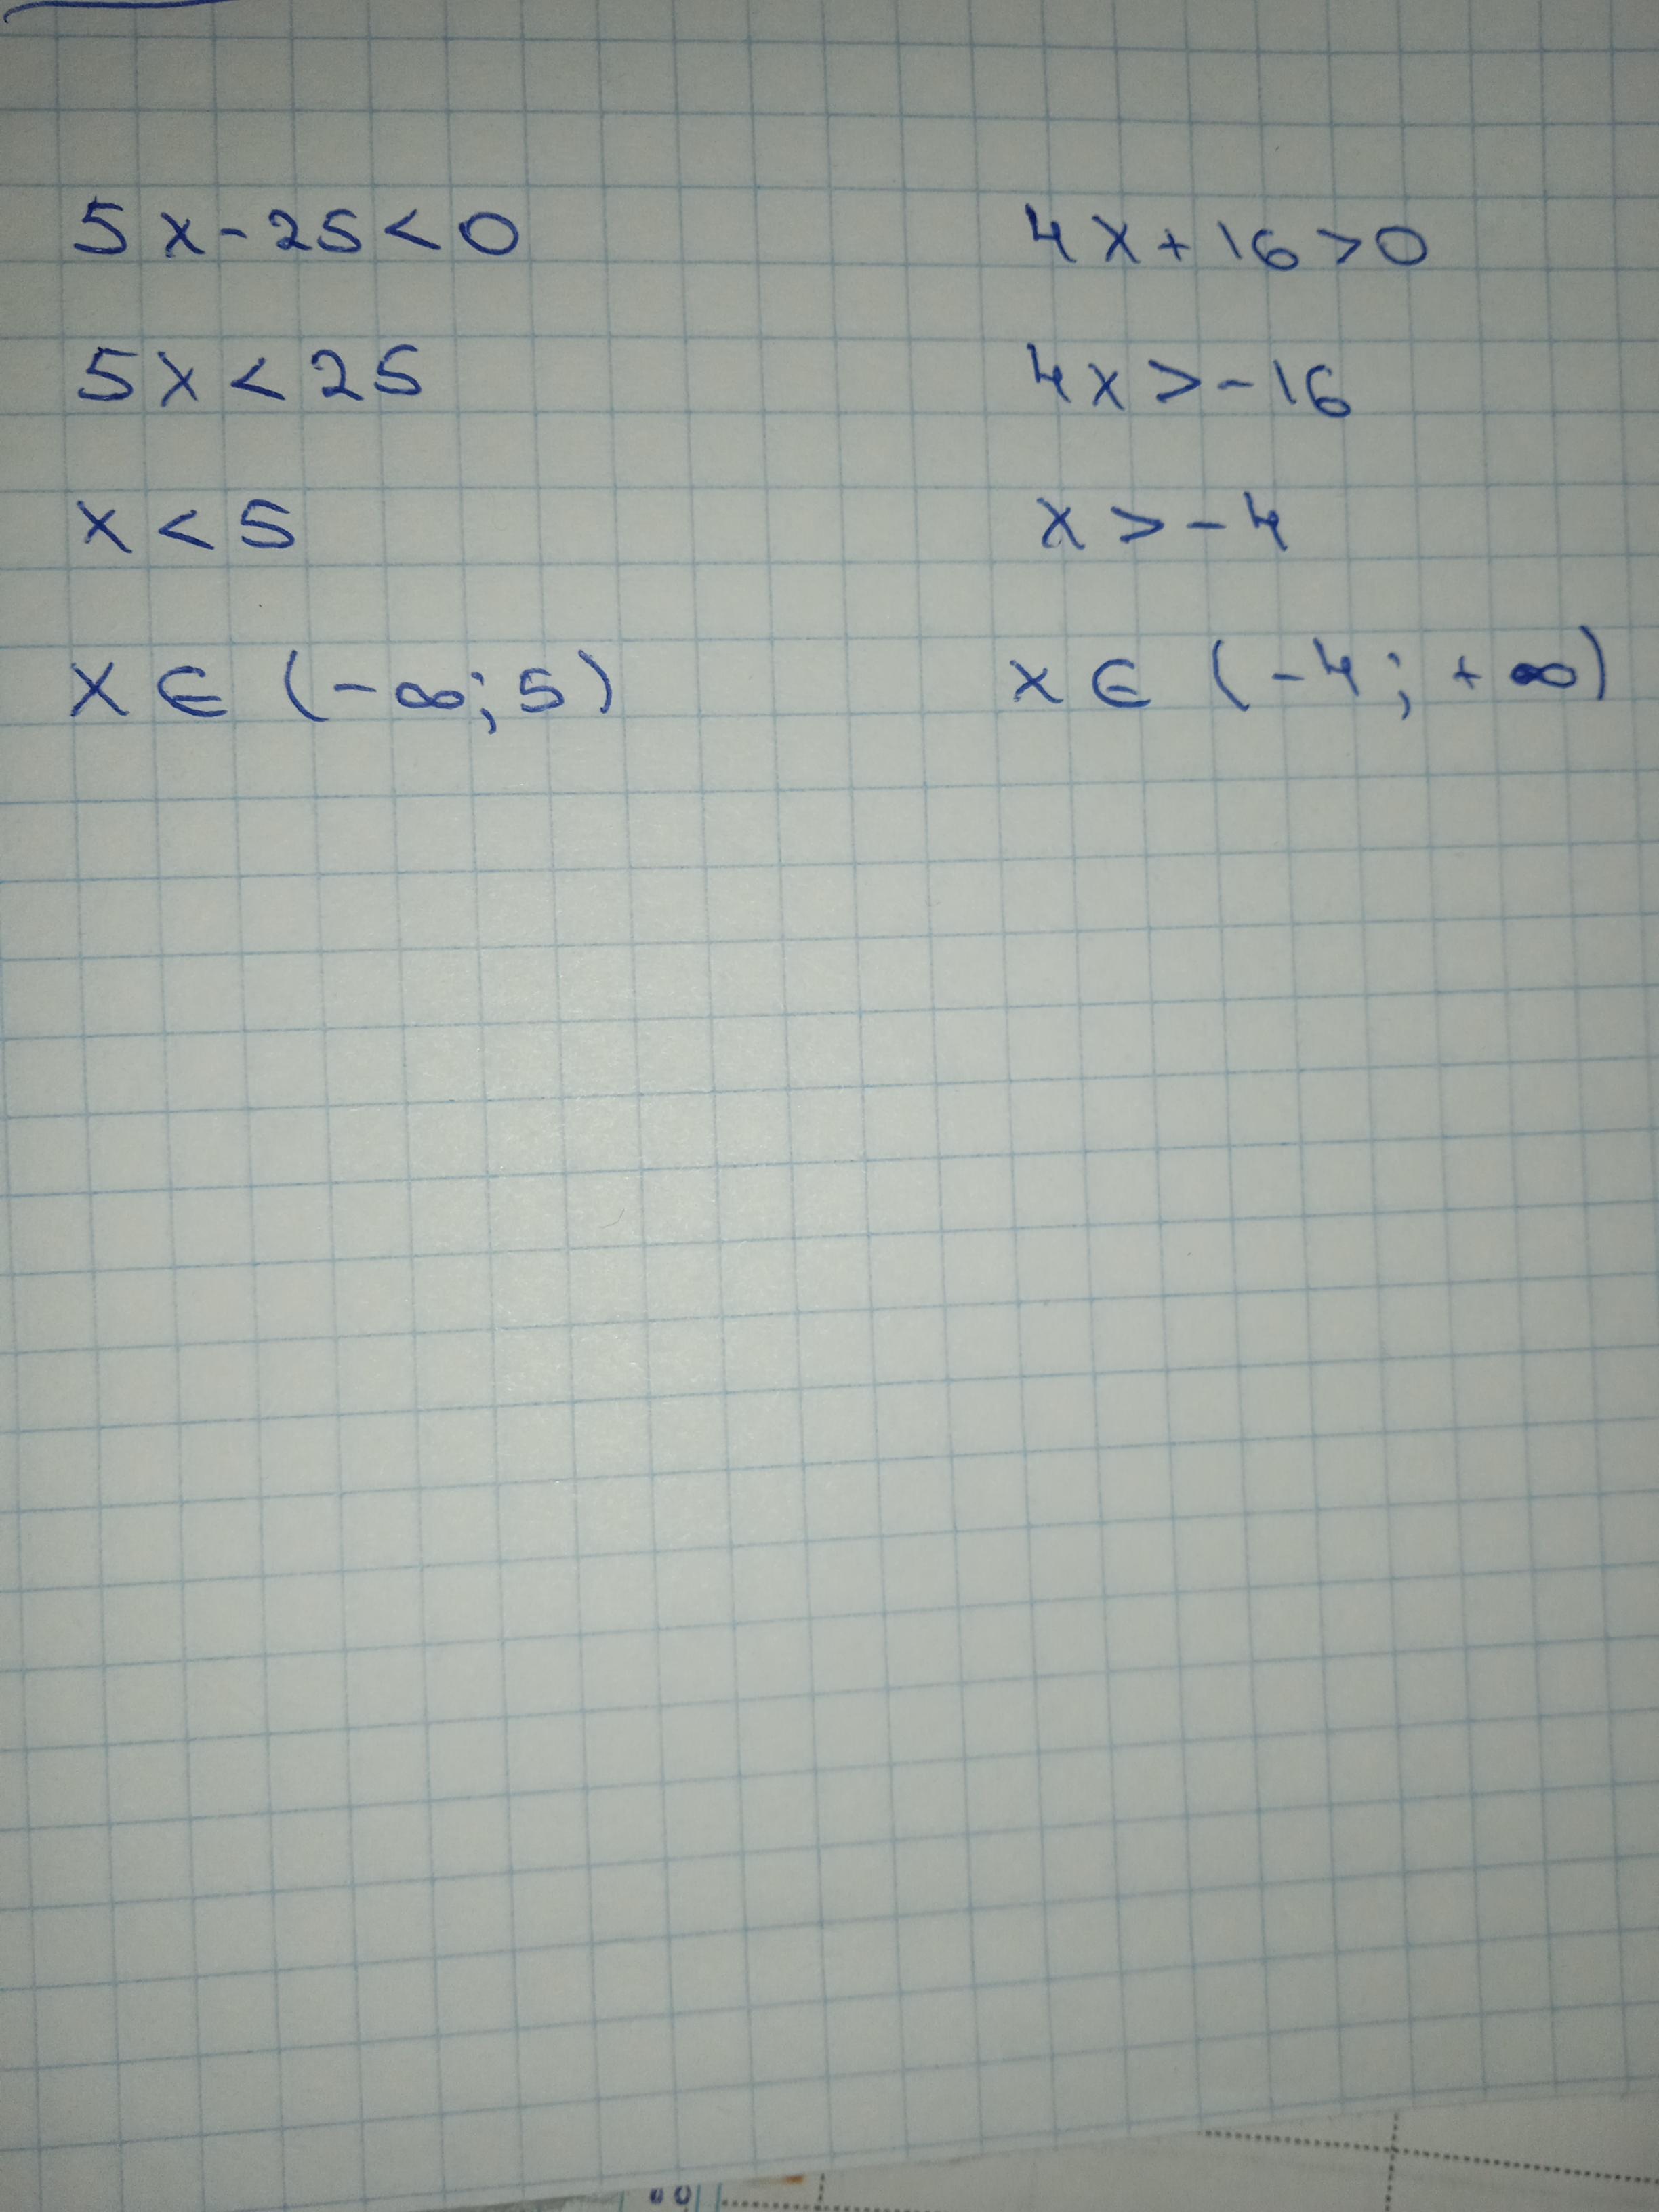 5x-25<0
5x<25
x<5
x∈(-∞;5)
4x+16>0
4x>-16
x>-4
x∈(-4;+∞)